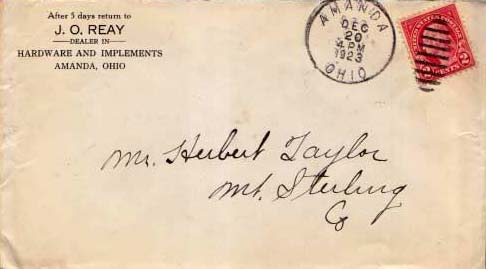 After 5 days return to
J. O. REAY
DEALER IN
HARDWARE AND IMPLEMENTS
AMANDA, OHIO
AMANDA
DEC
20
4 PM
1923
OHIO
UNITED STATES POSTAGE
2 CENTS 2
Mr. Herbert Taylor
Mt. Sterling